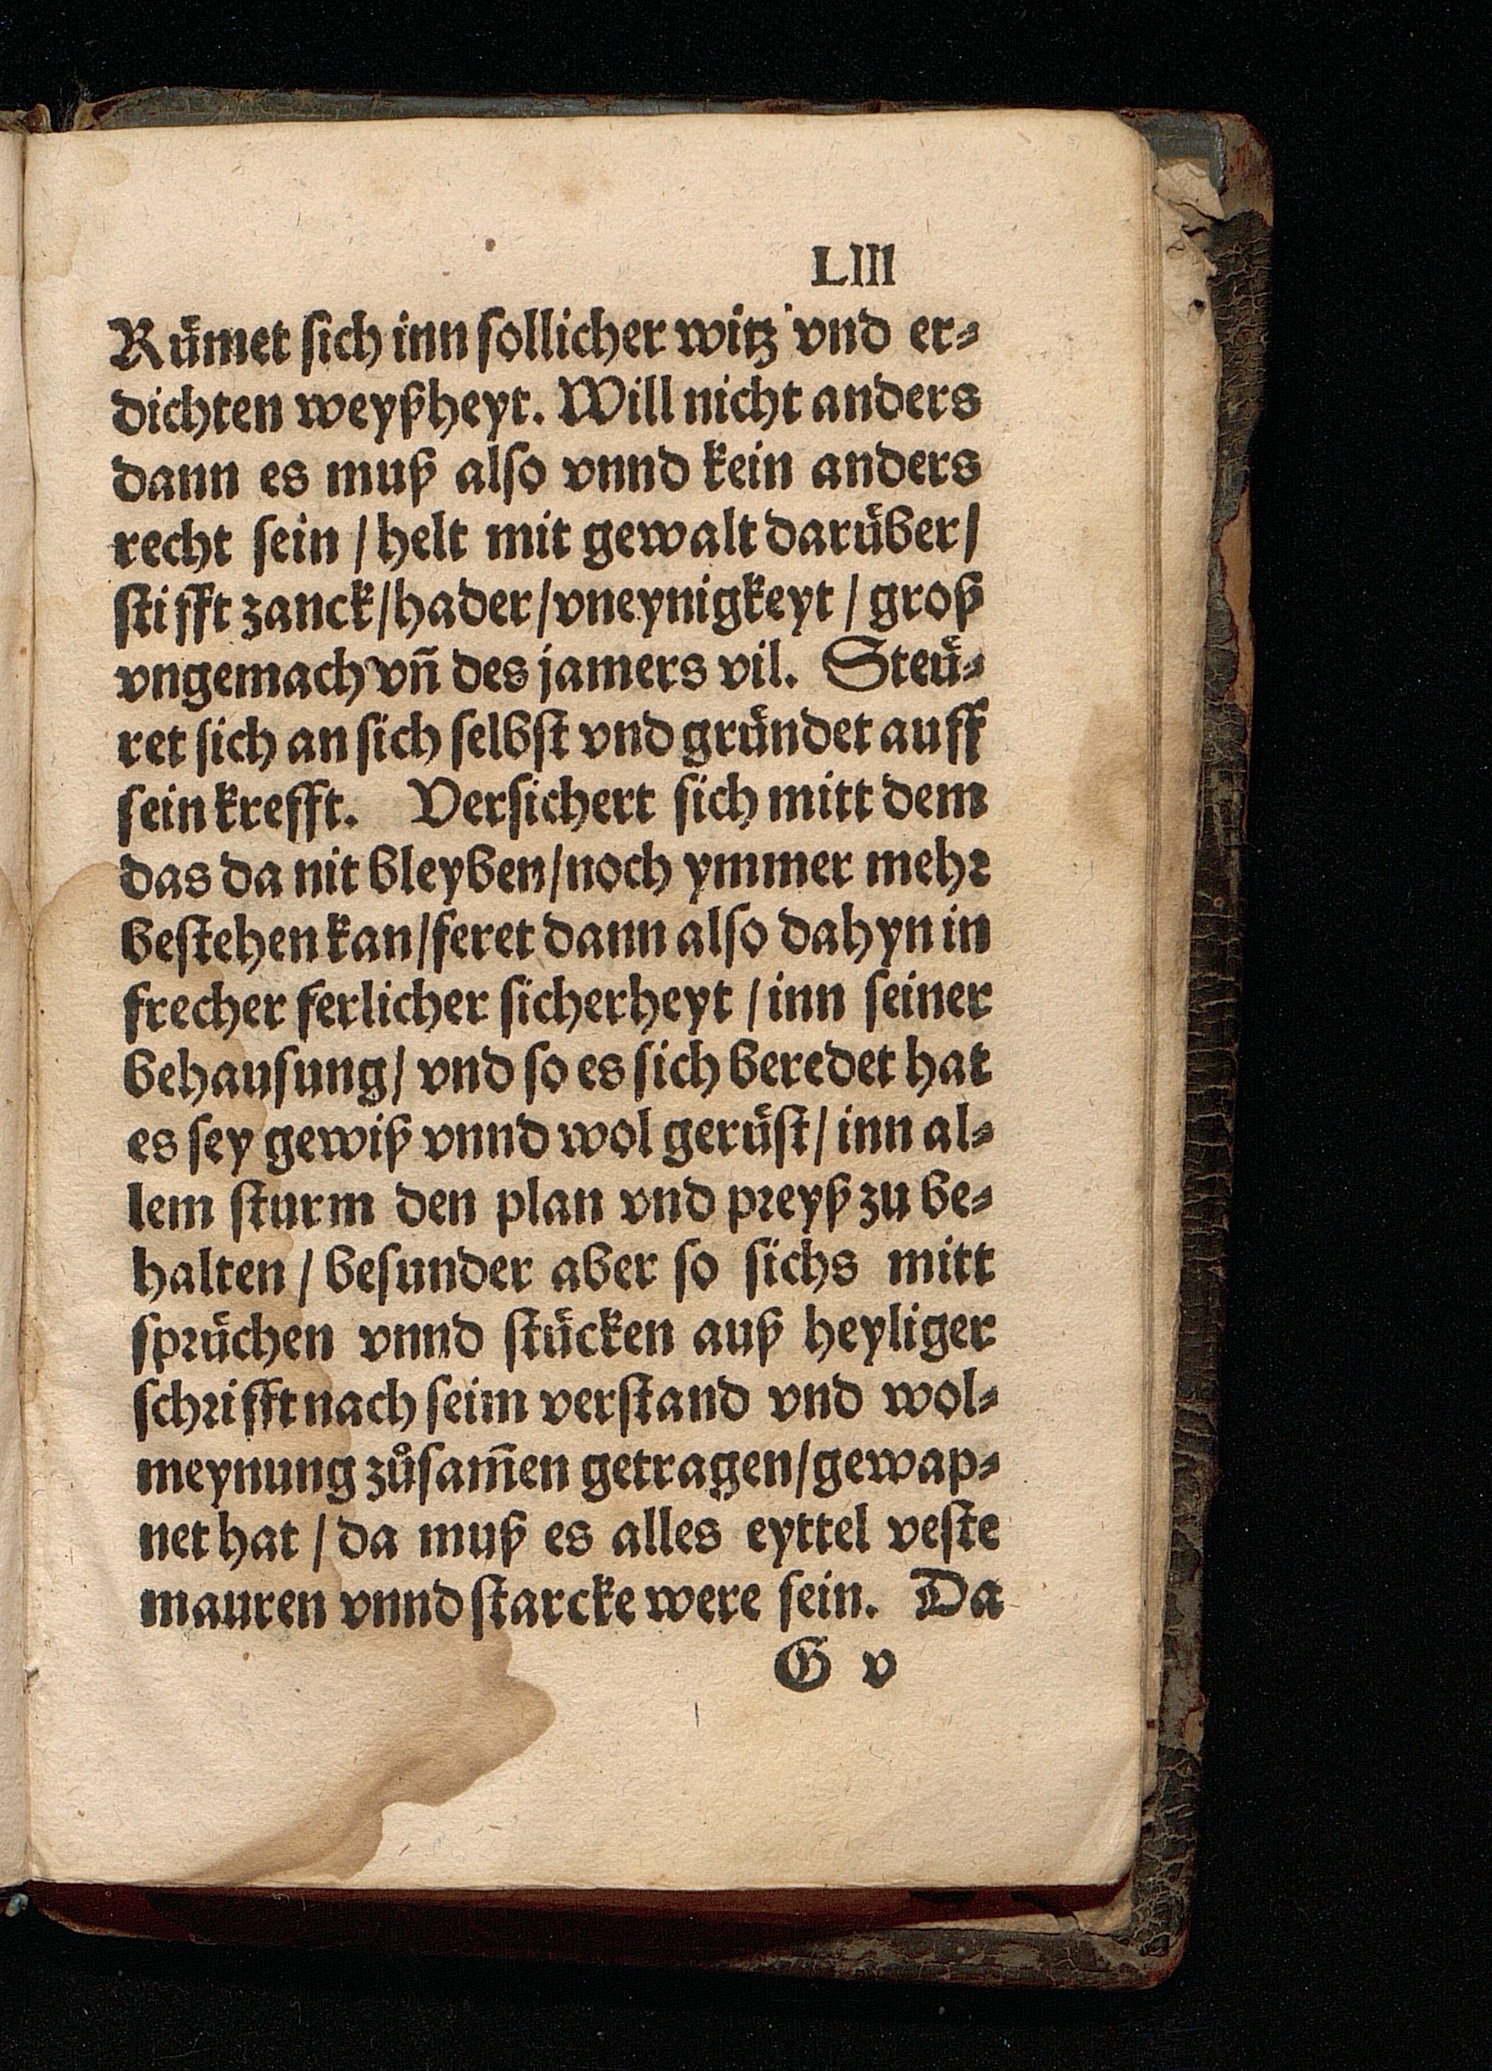 LIII
Ruͤmet sich inn sollicher witz vnd er⸗
dichten weyßheyt. Will nicht anders
dann es muß also vnnd kein anders
recht sein / helt mit gewalt daruͤber /
stifft zanck / hader / vneynigkeyt / groß
vngemach vñ des jamers vil. Steuͤ⸗
ret sich an sich selbst vnd gruͤndet auff
sein krefft. Versichert sich mitt dem
das da nit bleyben / noch ymmer mehr
bestehen kan / feret dann also dahyn in
frecher ferlicher sicherheyt / inn seiner
behausung / vnd so es sich beredet hat
es sey gewiß vnnd wol geruͤst / inn al⸗
lem sturm den plan vnd preyß zu be⸗
halten / besunder aber so sichs mitt
spruͤchen vnnd stuͤcken auß heyliger
schrifft nach seim verstand vnd wol⸗
meynung zuͦsam̃en getragen / gewap⸗
net hat / da muß es alles eyttel veste
mauren vnnd starcke were sein. Da
G v